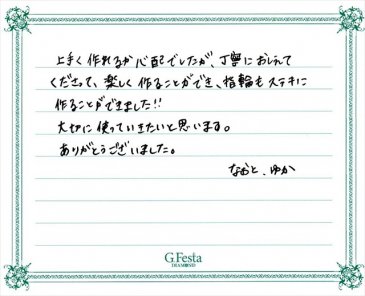 上手く作れるか心配でしたが、丁寧におしえて
くださって、楽しく作ることができ、指輪もステキに
作ることができました!!
大切に使っていきたいと思います。
ありがとうございました。
なおと、ゆか
G.Festa
DIAMOND